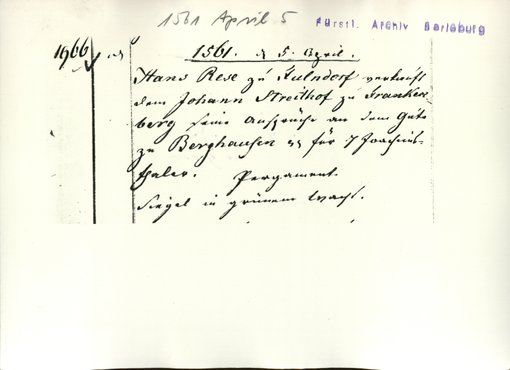 1561 April 5
Fürstl. Archiv Berleburg
1966
1561. d 5. April.
Hans Rese zu Fulndorf verkauft
dem Johann Streithof zu Franken
berg seine Ansprüche an dem Gute
zu Berghausen für 7 Joachims-
thaler. Pergament.
Siegel in grünem Wachs.